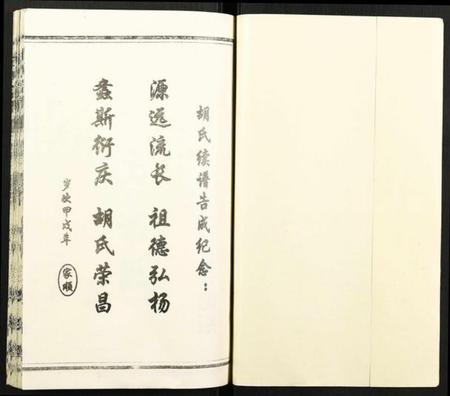 胡氏续谱告成纪念：
源远流长 祖德弘杨
螽斯衍庆 胡氏荣昌
岁次甲戌年
家顺